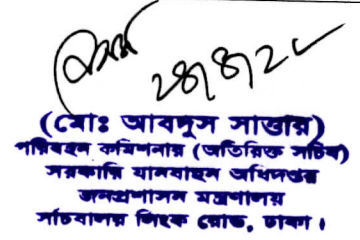 (মোঃ আবদুস সাত্তার)
পরিবহন কমিশনার (অতিরিক্ত সচিব)
সরকারি যানবাহন অধিদপ্তর
জনপ্রশাসন মন্ত্রণালয়
সচিবালয় লিংক রোড, ঢাকা।